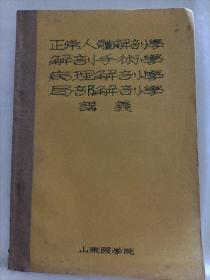 正常人體解剖學
解剖手術學
病理解剖學
局部解剖學
講義
山東医学院